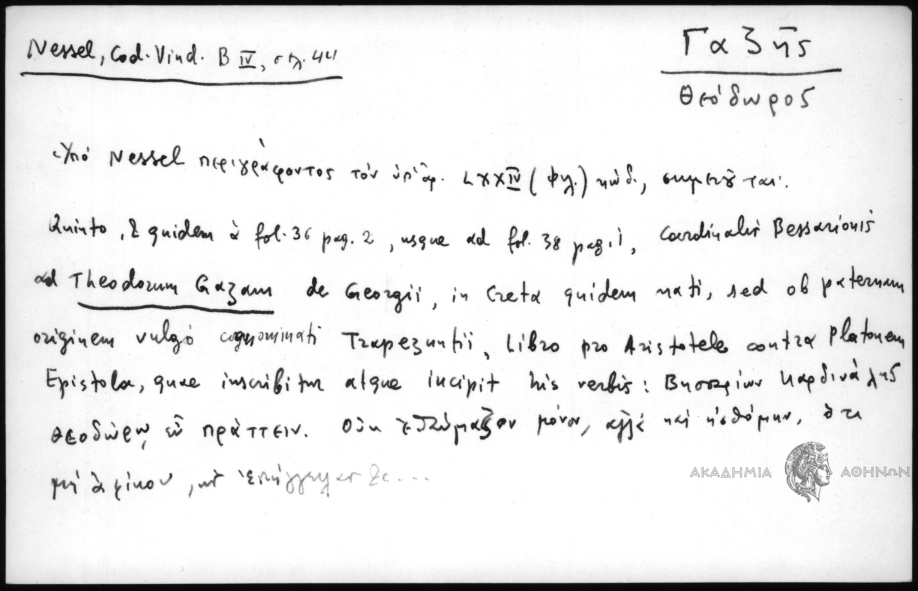 Nessel, Cod. Vind. B IV, σελ. 44
Γαζῆς
Θεόδωρος
Ὑπό Nessel περιγράφοντος τόν ὑπ' ἀρ. LXXIV (φιλ.) κώδ., σημειοῦται:
Quinto, & quidem à fol. 36 pag. 2, usque ad fol. 38 pag. 1, Cardinalis Bessarionis
ad Theodorum Gazam de Georgii, in Creta quidem nati, sed ob paternam
originem vulgò cognominati Trapezuntii, Libro pro Aristotele contra Platonem
Epistola, quae inscribitur atque incipit his verbis: Βησσαρίων καρδινάλης
Θεοδώρῳ εὖ πράττειν. Οὐκ ἐθαύμαζον μόνον, ἀλλά καί ἠχθόμην, ὅτι
μή ἀφίκου,
ΑΚΑΔΗΜΙΑ ΑΘΗΝΩΝ